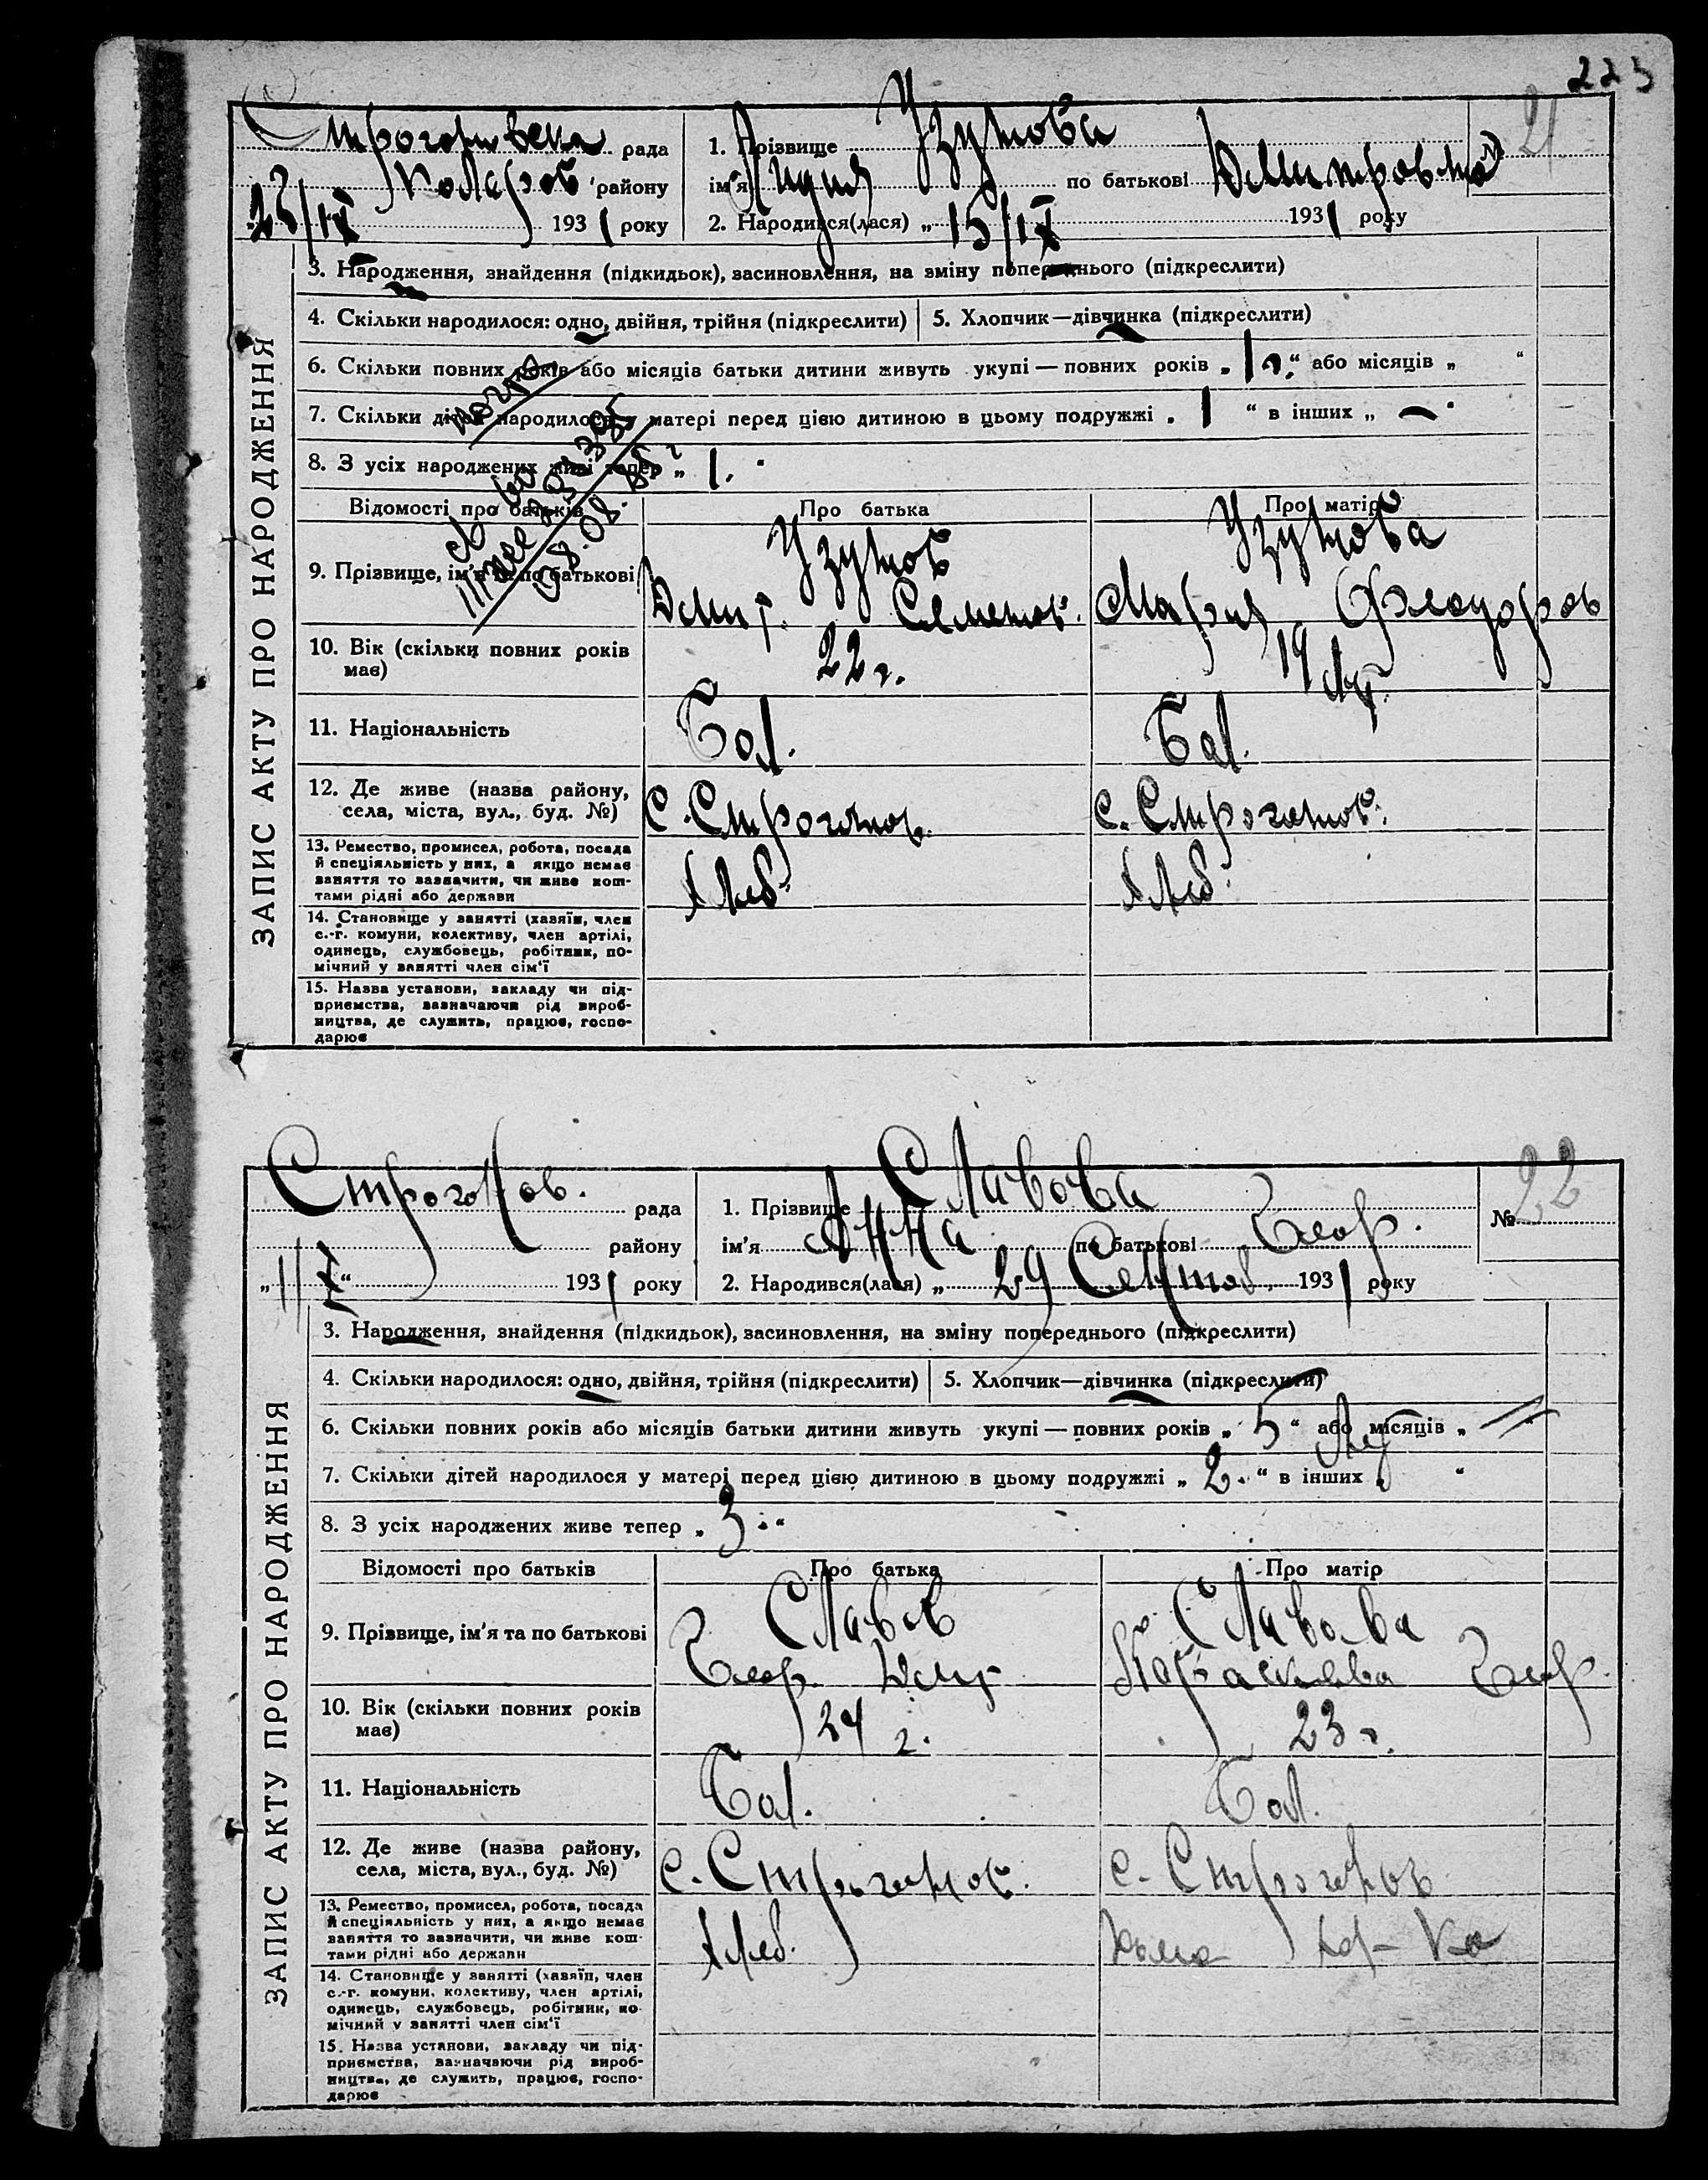 223
Строгановска рада
Коларов району
23/IX 1931 року
1. Прізвище Узунова
ім'я Лидия по батькові Дмитровна
2. Народився(лася) „ 15/IX 1931 року
№ 21
ЗАПИС АКТУ ПРО НАРОДЖЕННЯ
3. Народження, знайдення (підкидьок), засиновлення, на зміну попереднього (підкреслити)
4. Скільки народилося: одно, двійня, трійня (підкреслити)
5. Хлопчик—дівчинка (підкреслити)
6. Скільки повних років або місяців батьки дитини живуть укупі — повних років „ 1 г. “ або місяців „ “
7. Скільки дітей народилося у матері перед цією дитиною в цьому подружжі „ 1 “ в інших „ — “
8. З усіх народжених живі тепер „ 1. “
Відомості про батьків Про батька Про матір
9. Прізвище, ім'я та по батькові
Узунов
Дмит. Семенов.
Узунова
Мария Феодоров
10. Вік (скільки повних років
має)
22 г.
19 лт.
11. Національність Бол. Бол.
12. Де живе (назва району,
села, міста, вул., буд. №)
с. Строганов. с. Строганов.
13. Ремество, промисел, робота, посада
й спеціяльність у них, а якщо немає
заняття то зазначити, чи живе кош-
тами рідні або держави
Хлеб. Хлеб.
14. Становище у занятті (хазяїн, член
с.-г. комуни, колективу, член артілі,
одинець, службовець, робітник, по-
мічний у занятті член сім'ї
15. Назва установи, закладу чи під-
приємства, зазначаючи рід вироб-
ництва, де служить, працює, госпо-
дарює
Строганов. рада
району
„11/X“ 1931 року
1. Прізвище Славова
ім'я Анна по батькові Геор.
2. Народився(лася) „ 29 Сентяб. 1931 року
№ 22
ЗАПИС АКТУ ПРО НАРОДЖЕННЯ
3. Народження, знайдення (підкидьок), засиновлення, на зміну попереднього (підкреслити)
4. Скільки народилося: одно, двійня, трійня (підкреслити)
5. Хлопчик—дівчинка (підкреслити)
6. Скільки повних років або місяців батьки дитини живуть укупі — повних років „ 5 “ або місяців „
7. Скільки дітей народилося у матері перед цією дитиною в цьому подружжі „ 2. “ в інших „ “
8. З усіх народжених живе тепер „ 3. “
Відомості про батьків Про батька Про матір
9. Прізвище, ім'я та по батькові
Славов
Геор. Дмит
Славова
Параскева Геор.
10. Вік (скільки повних років
має)
24 г. 23 г.
11. Національність Бол. Бол.
12. Де живе (назва району,
села, міста, вул., буд. №)
с. Строганов. с. Строганов
13. Ремество, промисел, робота, посада
й спеціяльність у них, а якщо немає
заняття то зазначити, чи живе кош-
тами рідні або держави
Хлеб.
14. Становище у занятті (хазяїн, член
с.-г. комуни, колективу, член артілі,
одинець, службовець, робітник, по-
мічний у занятті член сім'ї
15. Назва установи, закладу чи під-
приємства, зазначаючи рід вироб-
ництва, де служить, працює, госпо-
дарює